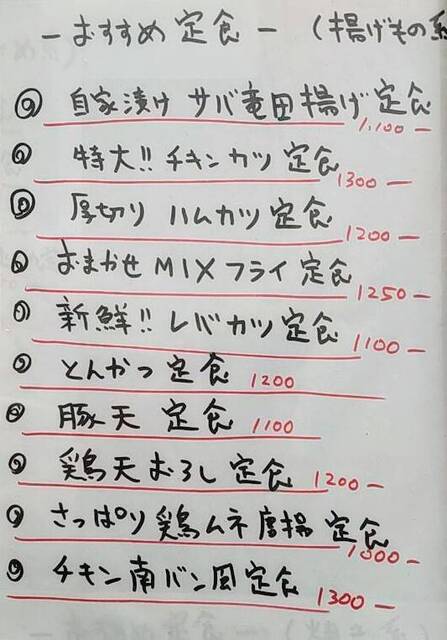 －おすすめ定食－ （揚げもの系
自家漬け サバ竜田揚げ定食 1,100－
特大!! チキンカツ定食 1300－
厚切り ハムカツ定食 1200－
おまかせMIXフライ定食 1250－
新鮮!! レバカツ定食 1100－
とんかつ定食 1200
豚天 定食 1100
鶏天おろし定食 1200－
さっぱり鶏ムネ唐揚 定食 1000－
チキン南バン風定食 1300－